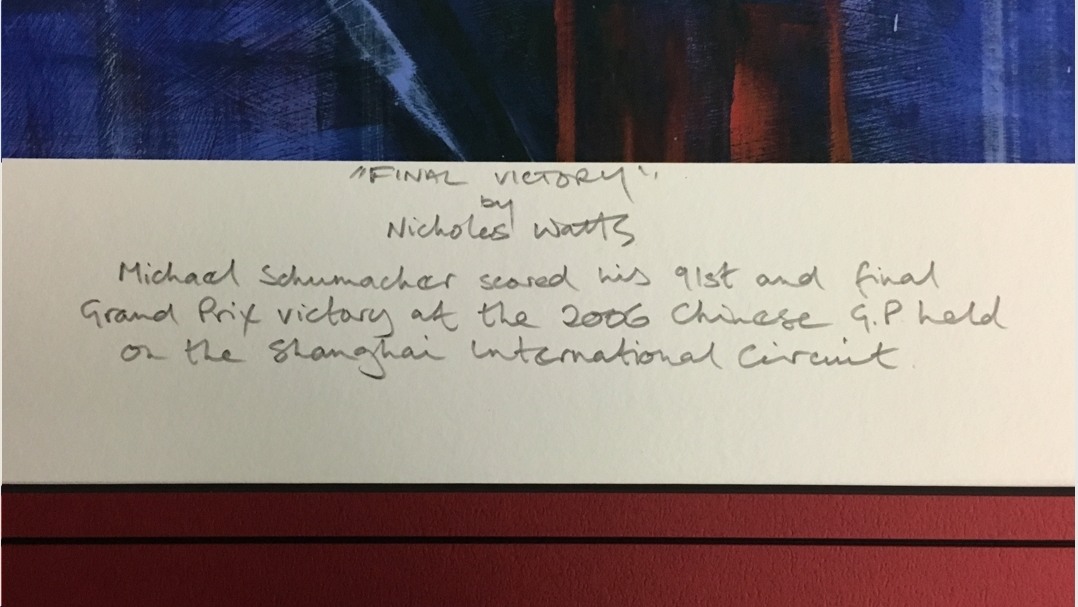 "FINAL VICTORY".
by
Nicholas Watts
Michael Schumacher scored his 91st and final
Grand Prix victory at the 2006 Chinese G.P held
on the Shanghai International Circuit.